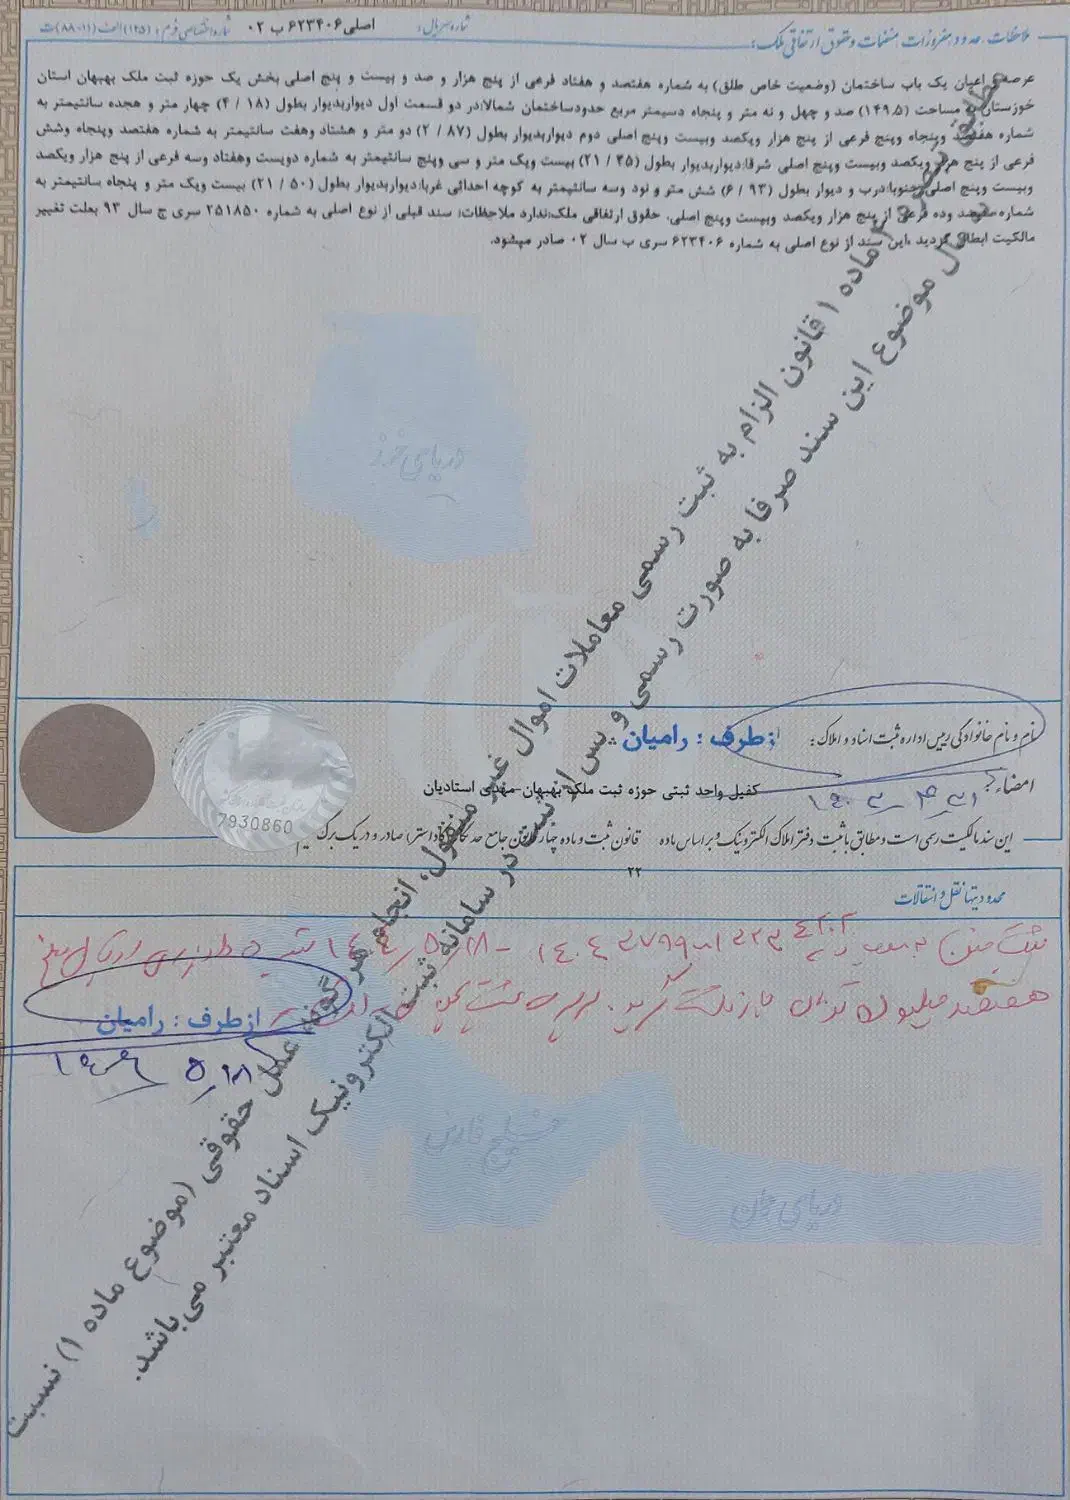 ملاحظات، حدود، مفروزات، منضمات و حقوق ارتفاقی ملک:
شماره سریال: اصلی ۶۲۳۴۰۶ ب ۰۲
شماره اختصاصی فرم: (۱۲۵) الف (۱۱-۸۸) ث
عرصه و اعیان یک باب ساختمان (وضعیت خاص طلق) به شماره هفتصد و هفتاد فرعی از پنج هزار و صد و بیست و پنج اصلی بخش یک حوزه ثبت ملک بهبهان استان
خوزستان به مساحت (۱۴۹.۵) صد و چهل و نه متر و پنجاه دسیمتر مربع حدودساختمان شمالا:در دو قسمت اول دیواربدیوار بطول (۱۸ / ۴) چهار متر و هجده سانتیمتر به
شماره هفتصد وپنجاه وپنج فرعی از پنج هزار ویکصد وبیست وپنج اصلی دوم دیواربدیوار بطول (۸۷ / ۲) دو متر و هشتاد وهفت سانتیمتر به شماره هفتصد وپنجاه وشش
فرعی از پنج هزار ویکصد وبیست وپنج اصلی شرقا:دیواربدیوار بطول (۳۵ / ۲۱) بیست ویک متر و سی وپنج سانتیمتر به شماره دویست وهفتاد وسه فرعی از پنج هزار ویکصد
وبیست وپنج اصلی جنوبا:درب و دیوار بطول (۹۳ / ۶) شش متر و نود وسه سانتیمتر به کوچه احداثی غربا:دیواربدیوار بطول (۵۰ / ۲۱) بیست ویک متر و پنجاه سانتیمتر به
شماره وده فرعی از پنج هزار ویکصد وبیست وپنج اصلی. حقوق ارتفاقی ملک:ندارد ملاحظات: سند قبلی از نوع اصلی به شماره ۲۵۱۸۵۰ سری ج سال ۹۳ بعلت تغییر
مالکیت ابطال گردید ،این سند از نوع اصلی به شماره ۶۲۳۴۰۶ سری ب سال ۰۲ صادر میشود.
ماده ۱ قانون الزام به ثبت رسمی معاملات اموال غیر منقول، انجام هر گونه عمل حقوقی (موضوع ماده ۱) نسبت
موضوع این سند صرفا به صورت رسمی و پس از ثبت در سامانه ثبت الکترونیک اسناد معتبر می‌باشد.
دریای خزر
نام و نام خانوادگی رییس اداره ثبت اسناد و املاک:
از طرف : رامیان
امضاء:
کفیل واحد ثبتی حوزه ثبت ملک بهبهان-مهدی استادیان
7930860
این سند مالکیت رسمی است و مطابق با ثبت دفتر املاک الکترونیک و بر اساس ماده ۲۲ قانون ثبت و ماده چهار قانون جامع حدنگار (کاداستر) صادر و در یک برگ
محدودیتها نقل و انتقالات
هفتصد میلیون تومان بازداشت گردید.
از طرف : رامیان
۱۴۰۴/۵/۱۸
خلیج فارس
دریای عمان